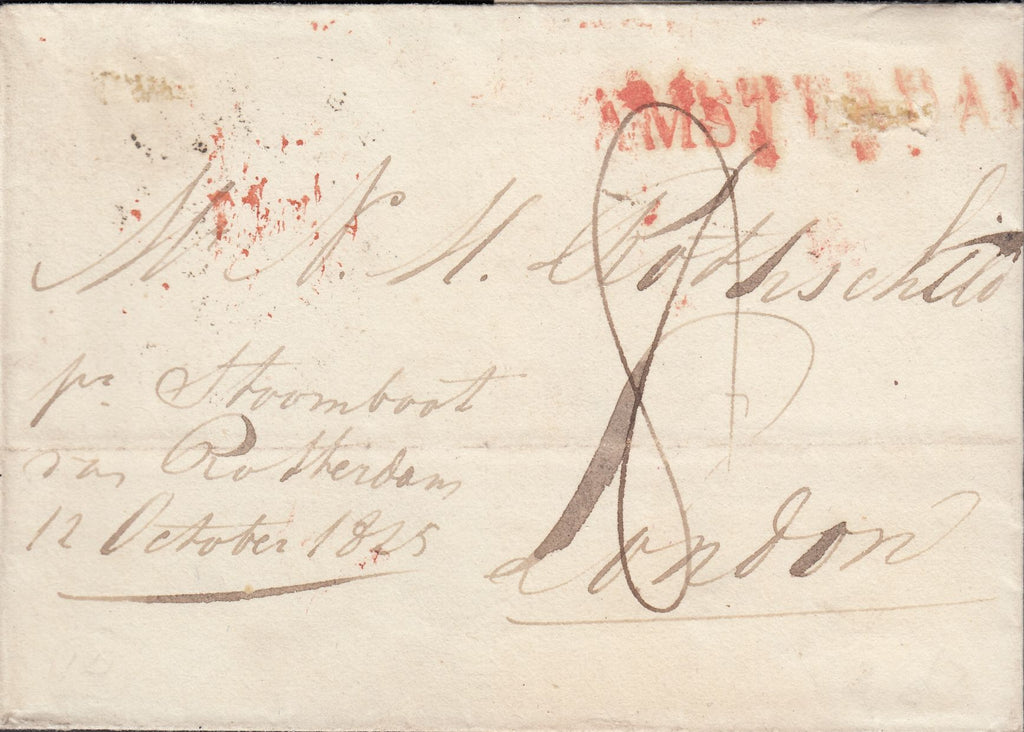 AMSTERDAM
Mr N. M. Rothschild
pr Stoomboot
van Rotterdam
12 October 1825
London